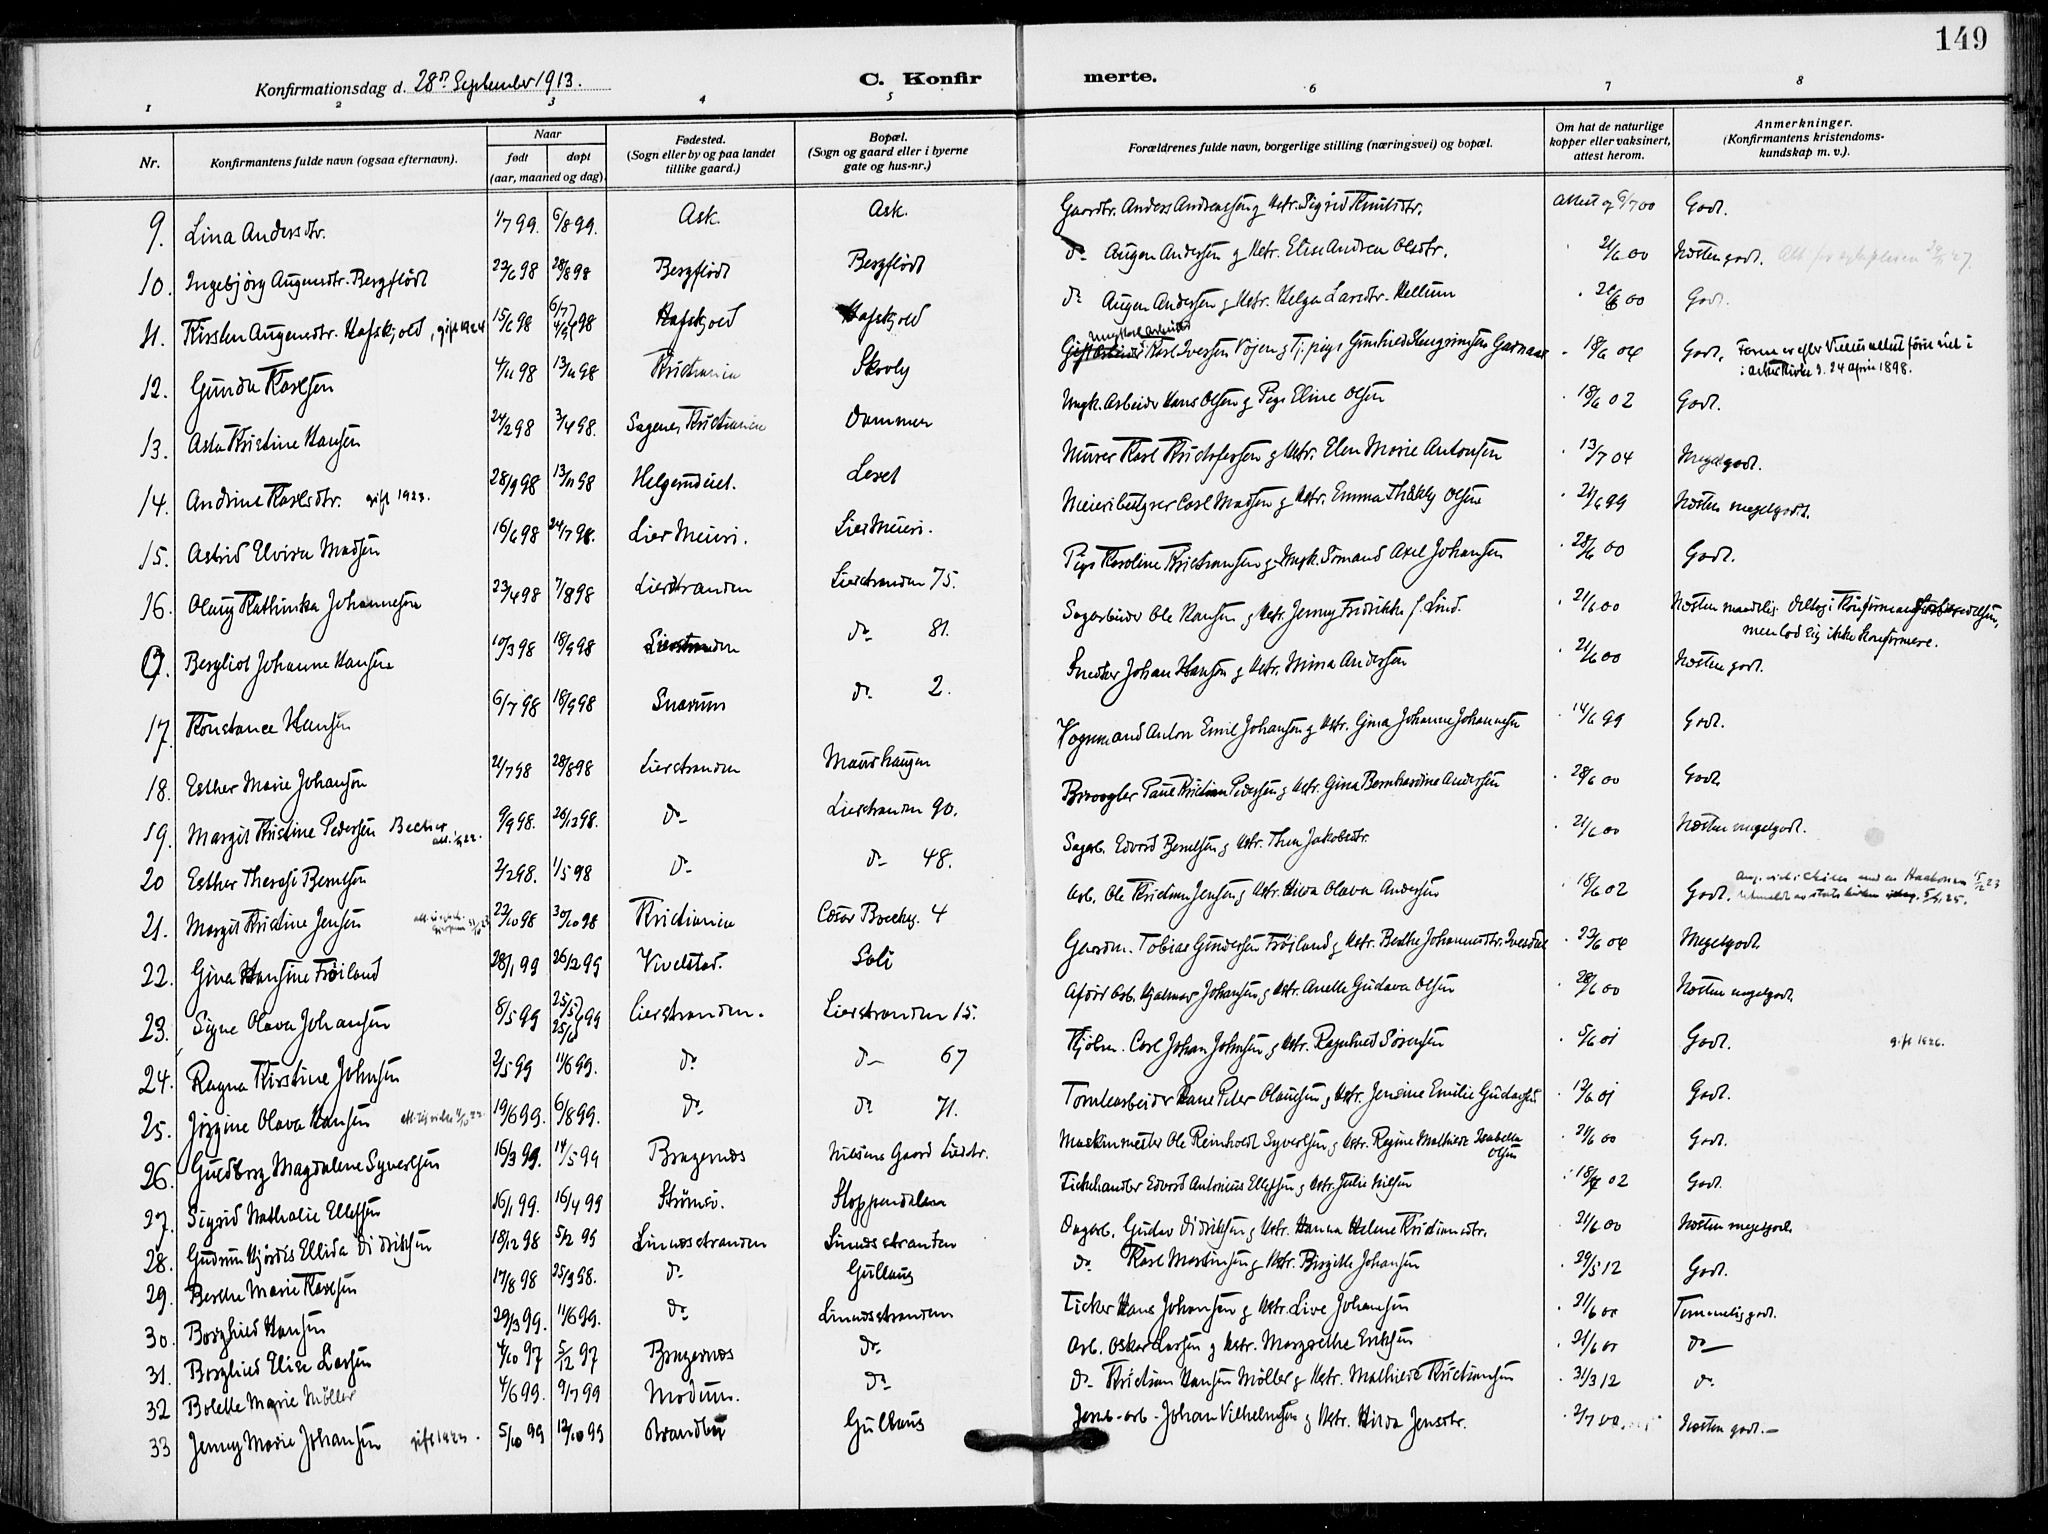 149
Konfirmationsdag d. 28de September 1913.
C. Konfirmerte.
1 2 3 4 5 6 7 8
Nr.
Konfirmantens fulde navn (ogsaa efternavn).
Naar
født
døpt
(aar, maaned og dag).
Fødested.
(Sogn eller by og paa landet
tillike gaard.)
Bopæl.
(Sogn og gaard eller i byerne
gate og hus-nr.)
Forældrenes fulde navn, borgerlige stilling (næringsvei) og bopæl.
Om hat de naturlige
kopper eller vaksinert,
attest herom.
Anmerkninger.
(Konfirmantens kristendoms-
kundskap m. v.).
9. Lina Andersdtr. 1/7 99. 6/8 99. Ask. Ask. Gaardbr. Anders Andreassen og Hstr. Sigrid Knutsdtr. Attest af 6/7 00 Godt.
10. Ingebjörg Augensdtr. Bergflödt 23/6 98 28/8 98 Bergflödt Bergflödt do Augen Andersen og Hstr. Elise Andrea Olsdtr. 21/6 00 Næsten godt.
11. Kirsten Augensdtr. Hafskjold, gift 1924 15/6 98 Hafskjold Hafskjold do Augen Andersen og Hstr. Helga Larsdtr. Hellum 21/6 00 Godt.
12. Gunda Karlsen 4/11 98 13/11 98 Kristiania Skovly Karl Iversen Vöjen og Tj.pige 18/6 04 Godt.
i Asker Kirke d. 24 April 1898.
13. Asta Kristine Hansen 24/2 98 3/4 98. Sagene, Kristiania Dammen Ungk. Arbeider Hans Olsen og Pige Eline Olsen 18/6 02 Godt.
14. Andrine Karlsdtr. gift 1923. 28/9 98 13/11 98 Helgerudeiet. Leret Murer Karl Kristofersen og Hstr. Elen Marie Antonsen 13/7 04 Meget godt.
15. Astrid Elvira Madsen 16/6 98 24/7 98. Lier Meieri. Lier Meieri. Meieribestyrer Carl Madsen og Hstr. Emma Thekla Olsen 21/6 99 Næsten meget godt.
16. Olaug Kathinka Johannesen 23/4 98 7/8 98 Lierstranden Lierstranden 75. Pige Karoline Kristiansen og Ungk. Sömand Axel Johansen 28/6 00 Godt.
Bergliot Johanne Hansen 10/3 98 18/9 98 Lierstranden do 81. Sagarbeider Ole Hansen og Hstr. Jenny Fredrikke f. Lind. 21/6 00 Næsten maadelig. Deltog i Konfirmandforberedelsen,
men lod sig ikke konfirmere.
17. Konstance Hansen 6/7 98 18/9 98 Snarum do 2. Snedker Johan Hansen og Hstr. Mina Andersen 21/6 00 Næsten godt.
18. Esther Marie Johansen 21/7 98 28/8 98 Lierstranden Maurhaugen Vognmand Anton Emil Johansen og Hstr. Gina Johanne Johannesen 14/6 99 Godt.
19. Margit Kristine Pedersen 9/9 98. 26/12 98. do Lierstranden 90. Brovogter Paul Kristian Pedersen og Hstr. Gina Bernhardine Andersen 28/6 00 Godt
20 Esther Theresi Berntsen 2/2 98. 1/5 98 do do 48. Sagarb. Edvard Berntsen og Hstr. Thea Jakobsdtr. 21/6 00 Næsten meget godt.
21. Margit Kristine Jensen 23/10 98 30/10 98 Kristiania Cæsar Boecks g. 4 Arb. Ole Kristian Jensen og Hstr. Hilda Olava Andersen 18/6 02 Godt.
22. Gina Hansine Fröiland 28/1 99 26/2 99 Kivelstad. Soli Gaardm. Tobias Gundersen Fröiland og Hstr. Berthe Johannesdtr. Ivesdal 23/6 04 Meget godt.
23. Signe Olava Johansen 8/5 99 Lierstranden. Lierstranden 15. Arb. Hjalmar Johansen og Hstr. Anette Gustava Olsen 28/6 00 Næsten meget godt.
24. Ragna Kirstine Johnsen 2/5 99 11/6 99. do do 67 Carl Johan Johnsen og Hstr. Ragnhild Sörensen 5/6 01 Godt. gift 1926.
25. Jörgine Olava Hansen 19/6 99. 6/8 99. do do 71. Tomtearbeider Hans Peter Olausen og Hstr. Jensine Emilie Gustavsen 12/6 01 Godt.
26. Guldborg Magdalene Syvertsen 16/3 99. 14/5 99 Bragernæs Nilsens Gaard Lierstr. Maskinmester Ole Reinholdt Syvertsen og Hstr. Regine Mathilde Isabella
Olsen 21/6 00 Godt.
27. Sigrid Nathalie Ellefsen 16/1 99. 16/4 99 Strömsö. Stoppendalen Fiskehandler Edvard Antonius Ellefsen og Hstr. Julie Nilsen 18/7 02 Godt.
28. Gudrun Hjördis Ellida Didriksen 18/12 98 5/2 99 Linnæsstranden Linnæsstranden Dagarb. Gustav Didriksen og Hstr. Hanna Helene Kristiansdtr. 21/6 00 Næsten meget godt.
29. Berthe Marie Karlsen 17/8 98 25/9 98. do Gulhaug do Karl Martinsen og Hstr. Birgitte Johansen 29/5 12 Godt.
30. Borghild Hansen 29/3 99. 11/6 99. do Linnæsstranden Fisker Hans Johansen og Hstr. Live Johansen 21/6 00 Temmelig godt.
31. Borghild Elise Larsen 4/10 97 5/12 97 Bragernæs do Arb. Oskar Larsen og Hstr. Margrethe Eriksen 21/6 01 do
32 Bolette Marie Möller 4/6 99. 9/7 99 Modum. do do Kristian Hansen Möller og Hstr. Mathilde Kristiansen 31/3 12 do
33 Jenny Marie Johansen gift 1923. 5/10 99 12/10 99 Brandbu Gulhaug Jernb-arb. Johan Vilhelmsen og Hstr. Hilda Jensdtr. 2/7 00 Næsten godt.